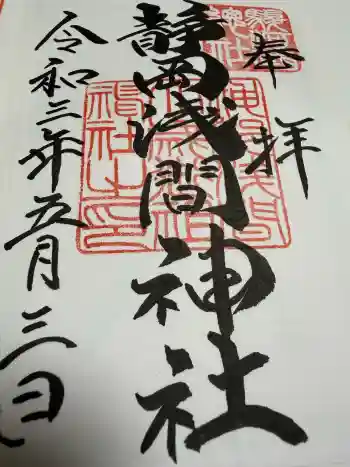 奉拝
静岡浅間神社
令和三年五月三日